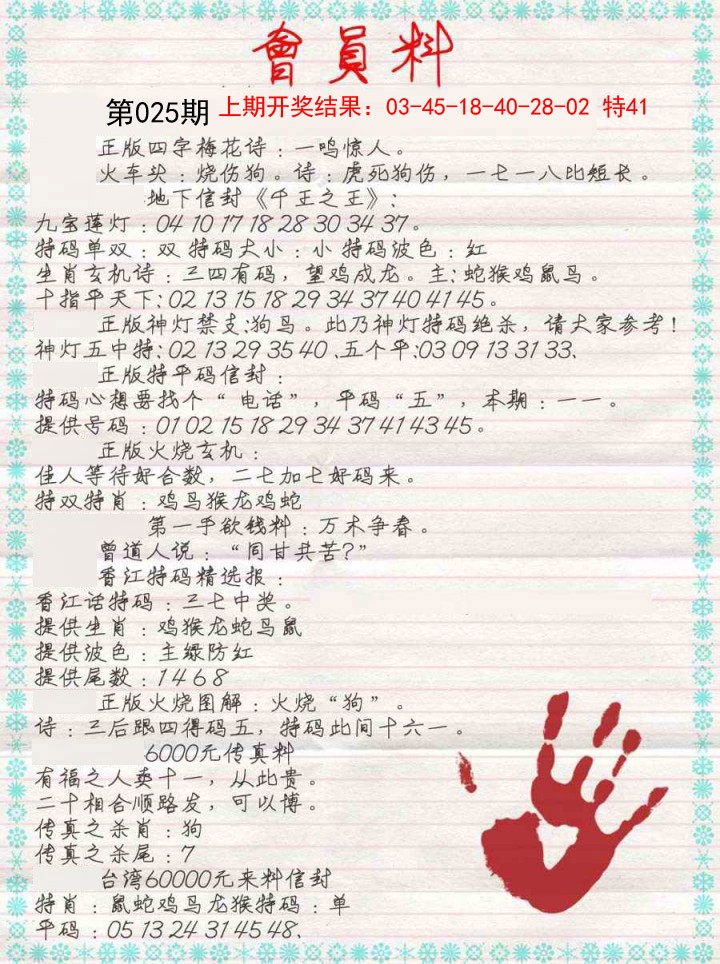 會員料
第025期 上期开奖结果：03-45-18-40-28-02 特41
正版四字梅花诗：一鸣惊人。
火车头：烧伤狗。诗：虎死狗伤，一七一八比短长。
地下信封《千王之王》：
九宝莲灯：04 10 17 18 28 30 34 37。
特码单双：双 特码大小：小 特码波色：红
生肖玄机诗：三四有码，望鸡成龙。主：蛇猴鸡鼠鸟。
十指平天下：02 13 15 18 29 34 37 40 41 45。
正版神灯禁支：狗鸟。此乃神灯特码绝杀，请大家参考！
神灯五中特：02 13 29 35 40、五个平：03 09 13 31 33、
正版特平码信封：
特码心想要找个“电话”，平码“五”，本期：一一。
提供号码：01 02 15 18 29 34 37 41 43 45。
正版火烧玄机：
佳人等待好合数，二七加七好码来。
特双特肖：鸡鸟猴龙鸡蛇
第一手欲钱料：万木争春。
曾道人说：“同甘共苦？”
香江特码精选报：
香江话特码：三七中奖。
提供生肖：鸡猴龙蛇鸟鼠
提供波色：主绿防红
提供尾数：1 4 6 8
正版火烧图解：火烧“狗”。
诗：三后跟四得码五，特码此间十六一。
6000元传真料
有福之人卖十一，从此贵。
二十相合顺路发，可以博。
传真之杀肖：狗
传真之杀尾：7
台湾60000元来料信封
特肖：鼠蛇鸡鸟龙猴特码：单
平码：05 13 24 31 45 48、